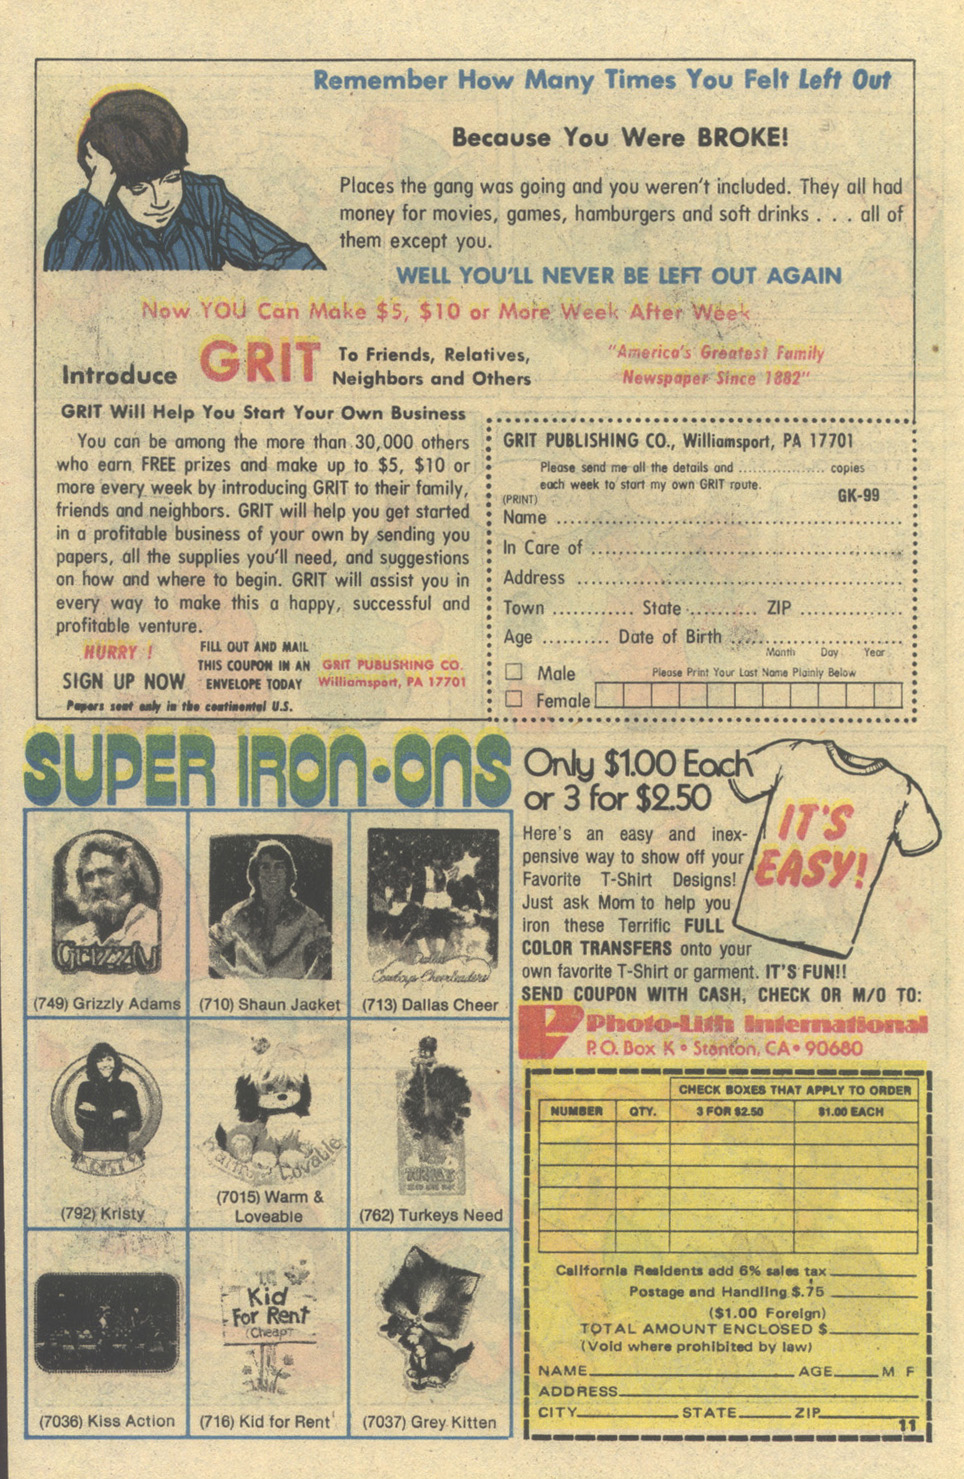 Remember How Many Times You Felt Left Out
Because You Were BROKE!
Places the gang was going and you weren't included. They all had
money for movies, games, hamburgers and soft drinks . . . all of
them except you.
WELL YOU'LL NEVER BE LEFT OUT AGAIN
Now YOU Can Make $5, $10 or More Week After Week
Introduce GRIT To Friends, Relatives,
Neighbors and Others
"America's Greatest Family
Newspaper Since 1882"
GRIT Will Help You Start Your Own Business
You can be among the more than 30,000 others
who earn FREE prizes and make up to $5, $10 or
more every week by introducing GRIT to their family,
friends and neighbors. GRIT will help you get started
in a profitable business of your own by sending you
papers, all the supplies you'll need, and suggestions
on how and where to begin. GRIT will assist you in
every way to make this a happy, successful and
profitable venture.
HURRY !
SIGN UP NOW
FILL OUT AND MAIL
THIS COUPON IN AN
ENVELOPE TODAY
GRIT PUBLISHING CO.
Williamsport, PA 17701
Papers sent only in the continental U.S.
GRIT PUBLISHING CO., Williamsport, PA 17701
Please send me all the details and .................. copies
each week to start my own GRIT route.
GK-99
(PRINT)
Name ....................
In Care of ....................
Address ....................
Town ............ State .......... ZIP ...............
Age .......... Date of Birth ....................
Month Day Year
Male
Female
Please Print Your Last Name Plainly Below
SUPER IRON-ONS
GRIZZLY
(749) Grizzly Adams
(710) Shaun Jacket
Dallas
Cowboys Cheerleaders
(713) Dallas Cheer
KRISTY
(792) Kristy
Warm Lovable
(7015) Warm &
Loveable
(762) Turkeys Need
(7036) Kiss Action
Kid
For Rent
(Cheap)
(716) Kid for Rent
(7037) Grey Kitten
Only $1.00 Each
or 3 for $2.50
IT'S
EASY!
Here's an easy and inex-
pensive way to show off your
Favorite T-Shirt Designs!
Just ask Mom to help you
iron these Terrific FULL
COLOR TRANSFERS onto your
own favorite T-Shirt or garment. IT'S FUN!!
SEND COUPON WITH CASH, CHECK OR M/O TO:
Photo-Lith International
P.O. Box K • Stanton, CA • 90680
CHECK BOXES THAT APPLY TO ORDER
NUMBER QTY. 3 FOR $2.50 $1.00 EACH
California Residents add 6% sales tax
Postage and Handling $.75
($1.00 Foreign)
TOTAL AMOUNT ENCLOSED $
(Void where prohibited by law)
NAME AGE M F
ADDRESS
CITY STATE ZIP
11